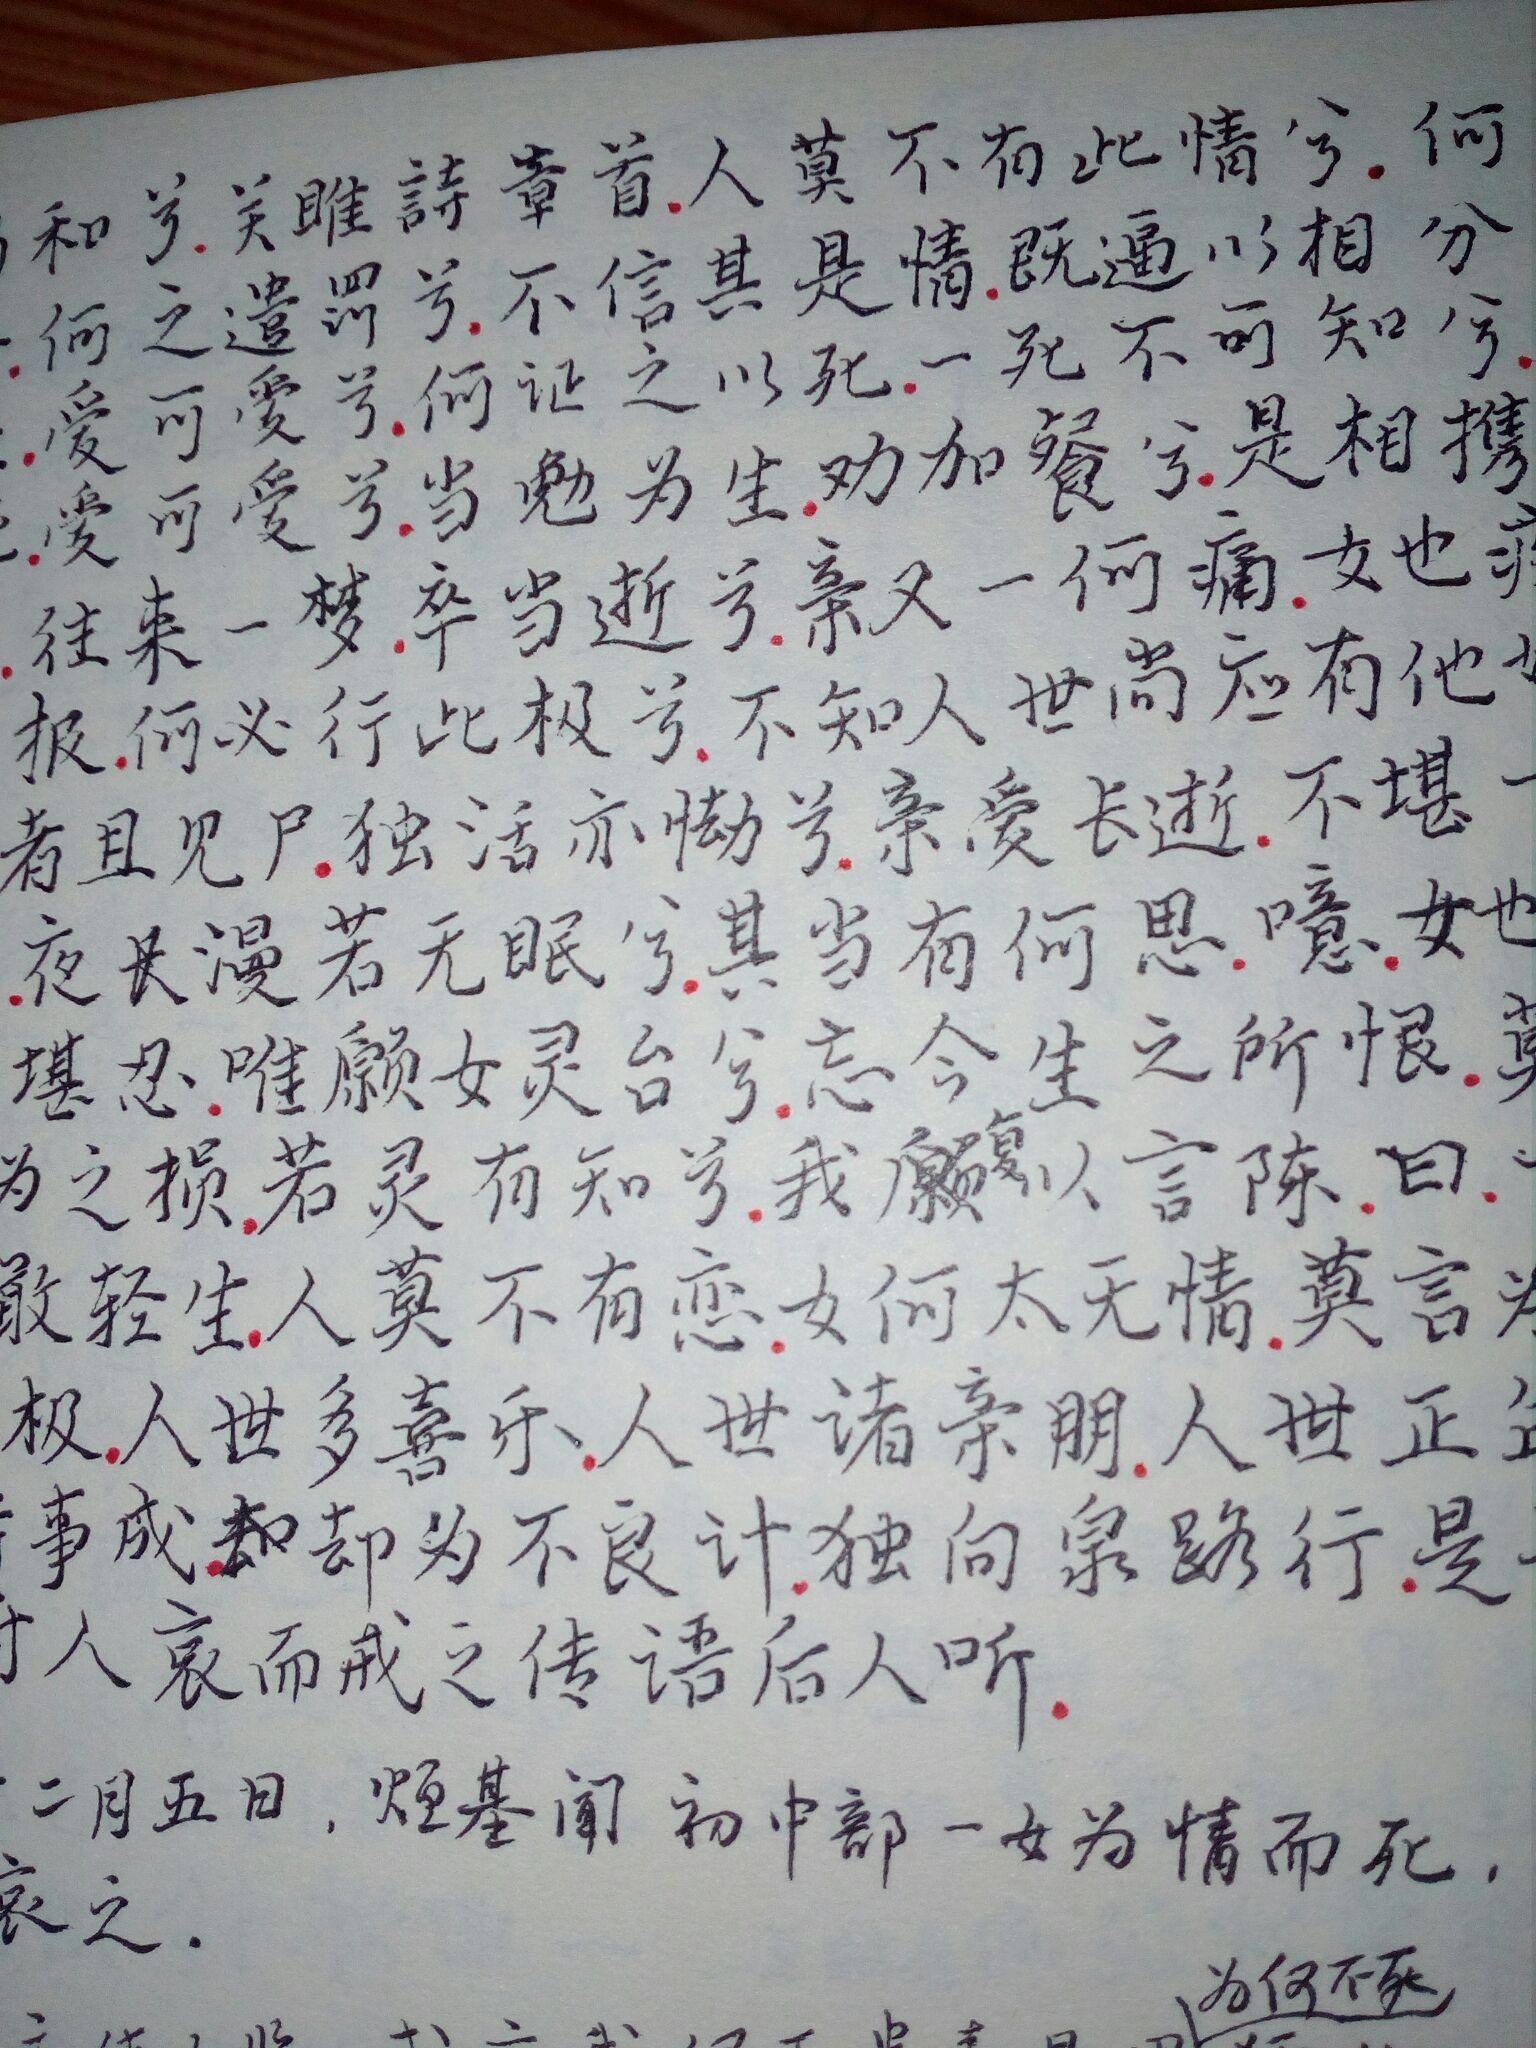 和兮.关雎詩章首.人莫不有此情兮.何
.何之遣罚兮.不信其是情.既逼以相分
.爱可爱兮.何证之以死.一死不可知兮.
.爱可爱兮.当勉为生.劝加餐兮.是相携
.往来一梦.卒当逝兮.亲又一何痛.女也
报.何必行此极兮.不知人世尚应有他
者且见尸.独活亦恸兮.亲爱长逝.不堪一
.夜长漫若无眠兮.其当有何思.噫.女也
堪忍.唯願女灵台兮.忘今生之所恨.莫
为之损.若灵有知兮.我願复以言陈.曰.
敢轻生.人莫不有恋.女何太无情.莫言为
极.人世多喜乐.人世诸亲朋.人世正
事成.却却为不良计.独向泉路行.是
时人哀而戒之传语后人听.
二月五日,烜基闻初中部一女为情而死,
哀之.
为何不死